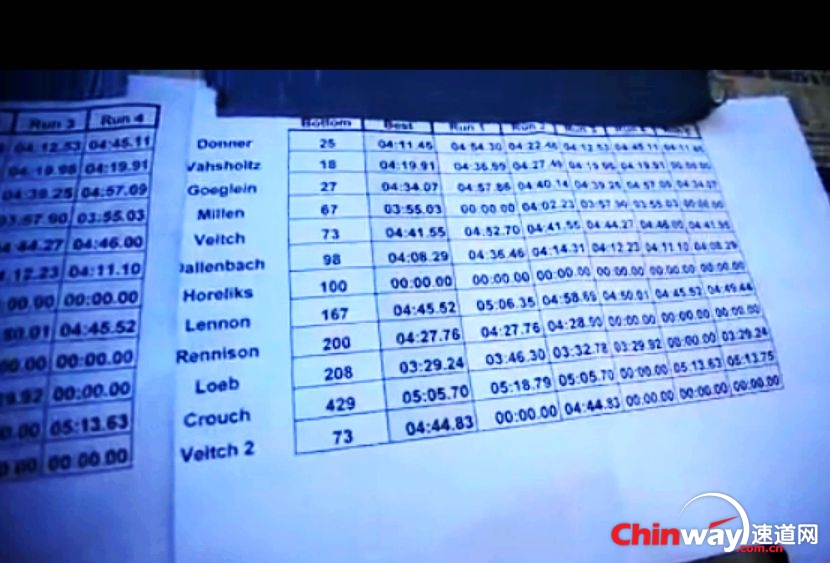 Run 3 Run 4
04:12.53 04:45.11
04:19.98 04:19.91
04:39.25 04:57.09
03:57.90 03:55.03
44.27 04:46.00
12.23 04:11.10
00.00 00:00.00
50.01 04:45.52
00.00 00:00.00
29.92 00:00.00
0.00 05:13.63
00 00:00.00
Bottom Best Run 1 Run 2
Donner 25 04:11.45 04:54.30 04:22.46 04:12.53 04:45.11 04:11.45
Vahsholtz 18 04:19.91 04:36.99 04:27.49 04:19.98 04:19.91 00:00.00
Goeglein 27 04:34.07 04:57.86 04:40.14 04:39.25 04:57.09 04:34.07
Millen 67 03:55.03 00:00.00 04:02.23 03:57.90 03:55.03 00:00.00
Veitch 73 04:41.55 04:52.70 04:41.55 04:44.27 04:46.00 04:41.95
Dallenbach 98 04:08.29 04:36.46 04:14.31 04:12.23 04:11.10 04:08.29
Horeliks 100 00:00.00 00:00.00 00:00.00 00:00.00 00:00.00 00:00.00
Lennon 167 04:45.52 05:06.35 04:58.69 04:50.01 04:45.52 04:49.44
Rennison 200 04:27.76 04:27.76 04:28.90 00:00.00 00:00.00 00:00.00
Loeb 208 03:29.24 03:46.30 03:32.78 03:29.92 00:00.00 03:29.24
Crouch 429 05:05.70 05:18.79 05:05.70 00:00.00 05:13.63 05:13.75
Veitch 2 73 04:44.83 00:00.00 04:44.83 00:00.00 00:00.00 00:00.00
Chinway 速道网
.com.cn